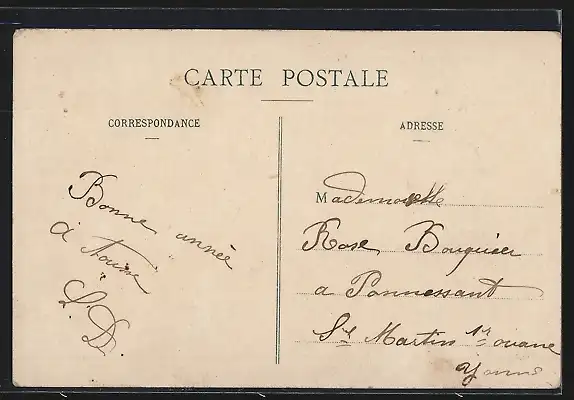 CARTE POSTALE
CORRESPONDANCE
ADRESSE
Bonne année
à
L. D.
Mademoiselle
Rose Bouquier
a Ponnessant
St Martin s/ ouane
Yonne